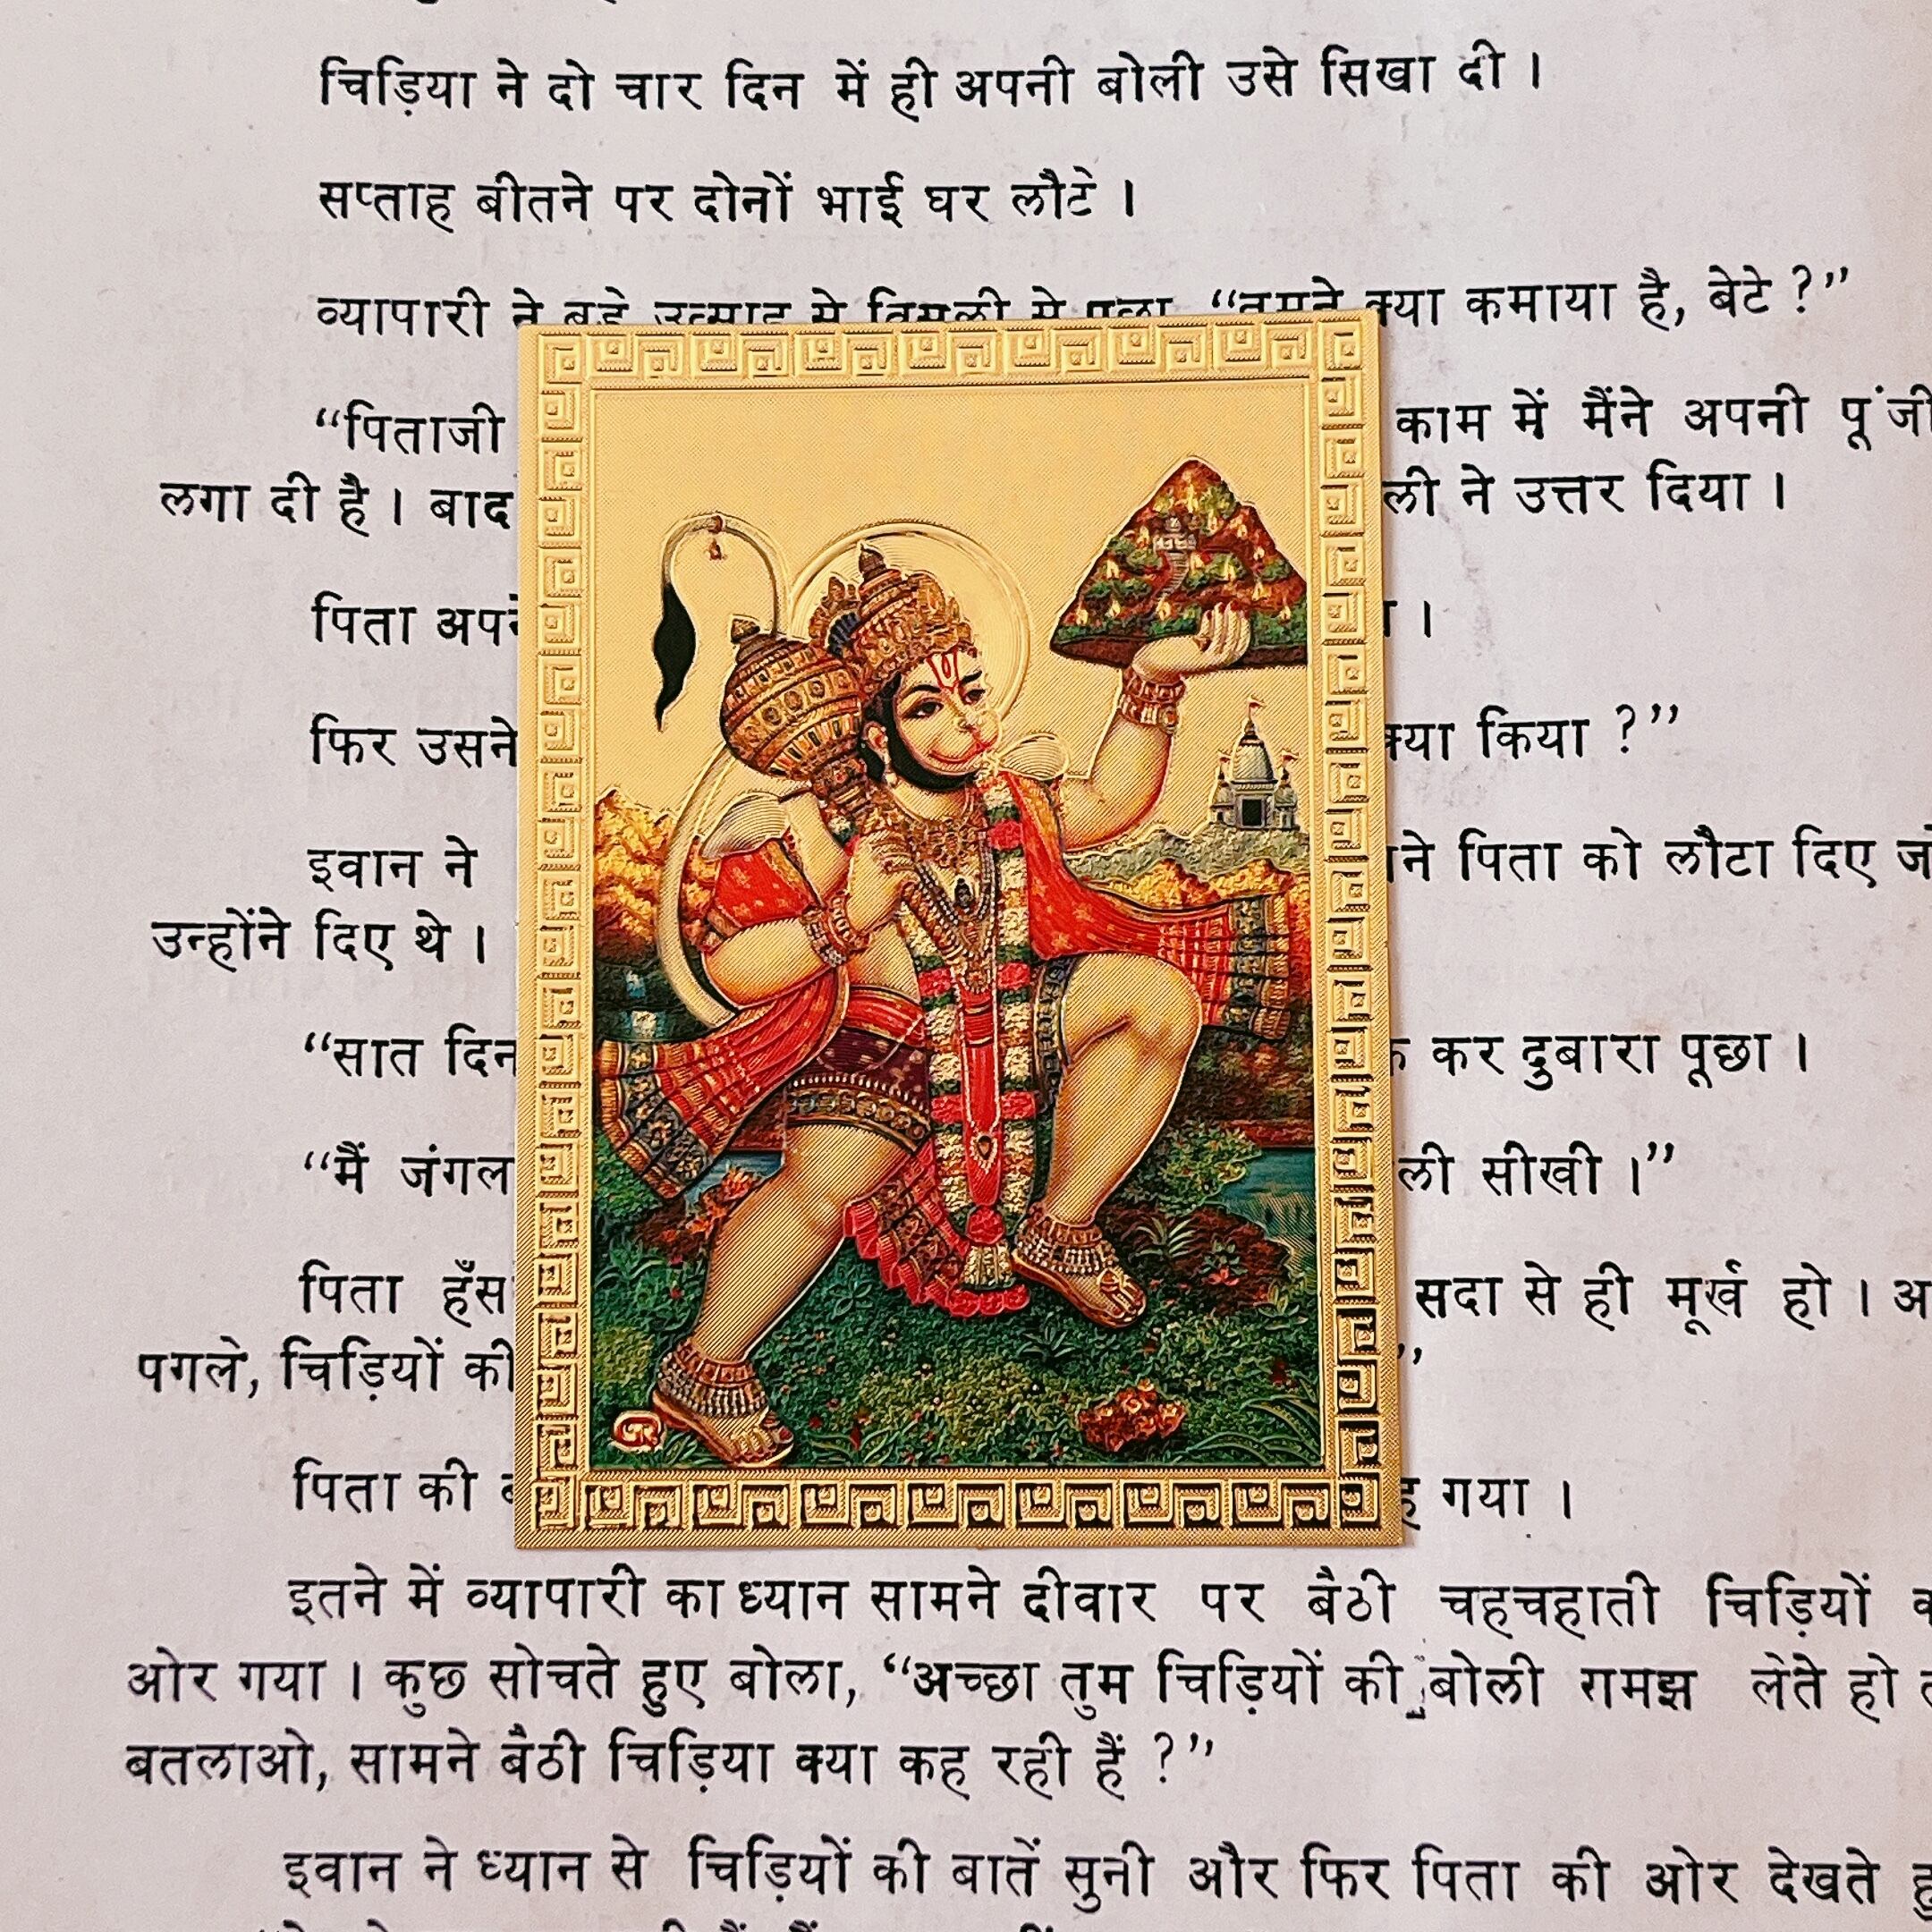 चिड़िया ने दो चार दिन में ही अपनी बोली उसे सिखा दी ।
सप्ताह बीतने पर दोनों भाई घर लौटे ।
व्यापारी ने बड़े उत्साह से विसली से पूछा “तुमने क्या कमाया है, बेटे ?”
“पिताजी काम में मैंने अपनी पूंजी
लगा दी है । बाद ने उत्तर दिया ।
पिता
फिर उसने क्या किया ?”
इवान ने पिता को लौटा दिए
उन्होंने दिए थे ।
“सात दिन कर दुबारा पूछा ।
“मैं जंगल सीखी ।”
पिता सदा से ही मूर्ख हो ।
पगले, चिड़ियों की
पिता की गया ।
इतने में व्यापारी का ध्यान सामने दीवार पर बैठी चहचहाती चिड़ियों
ओर गया । कुछ सोचते हुए बोला, “अच्छा तुम चिड़ियों की बोली रामझ लेते हो
बतलाओ, सामने बैठी चिड़िया क्या कह रही हैं ?”
इवान ने ध्यान से चिड़ियों की बातें सुनी और फिर पिता की ओर देखते